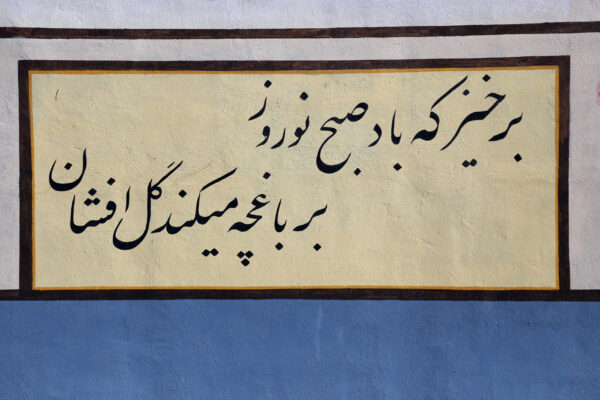 برخیز که باد صبح نوروز
بر باغچه میکند گل افشان